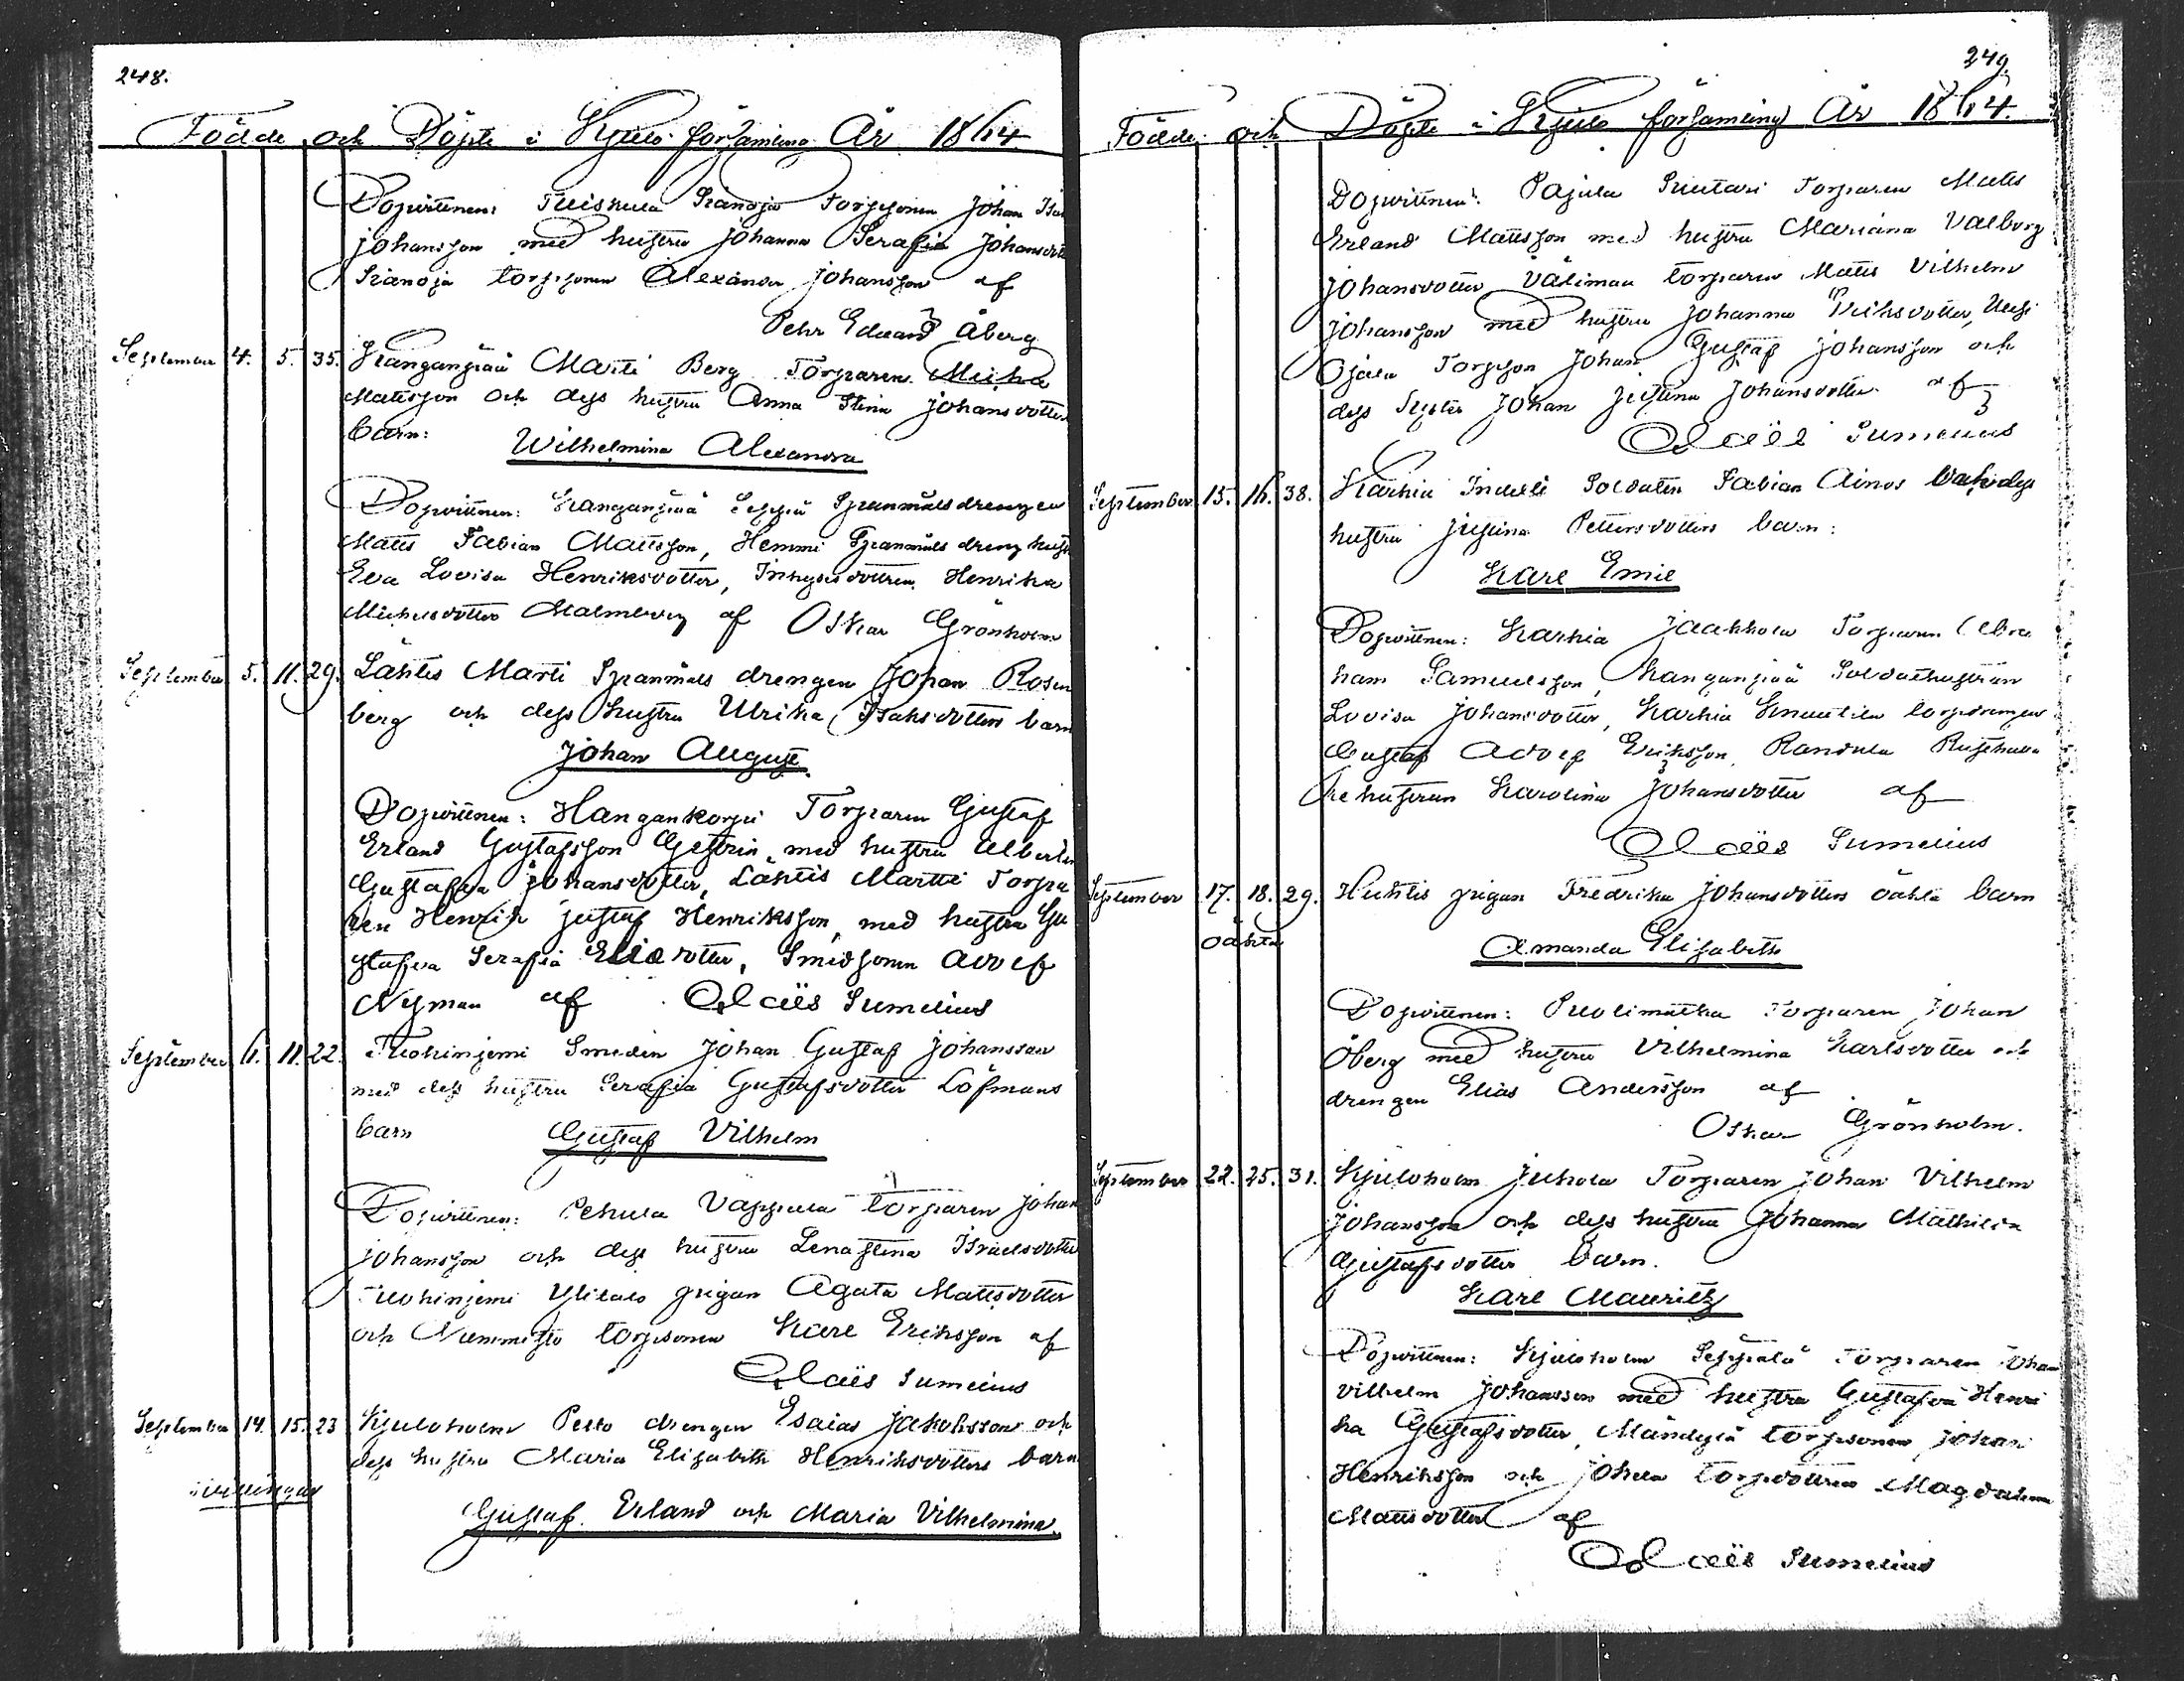 248.
Födde och Döpte i Kjulo församling År 1864
Dopvittnen: Kianoja Torpsonen Johan
Johansson med hustru Johanna Serafia Johansdotter
Kianoja torpsonen Alexander Johansson af
Pehr Eduard Åberg
September 4. 5. 35. Kanganpää Marti Berg Torparen Micha
Mattsson och dess hustru Anna Stina Johansdotters
barn:
Wilhelmina Alexandra
Dopvittnen: Kanganpää Seppä Spanmåls drengen
Matts Fabian Mattsson, Hemmi Spanmåls dreng hust
Eva Lovisa Henriksdotter, Inhyses dottren Henrika
Michelsdotter Malmberg af Oskar Grönholm
September 5. 11. 29. Lähtis Marti Spanmåls drengen Johan Rosen
berg och dess hustru Ulrika Isaksdotters barn
Johan August
Dopvittnen: Hangankorpi Torparen Gustaf
Erland Gustafsson Gestrin med hustru Albertin
Gustafva Johansdotter, Lähtis Martti Torpa
ren Henrik Justaf Henriksson, med hustru Gu
stafva Serafia Eliædotter, Smedsonen Adolf
Nyman af Claës Sumelius
September 6. 11. 22. Tuohinjemi Smeden Johan Gustaf Johansson
med dess hustru Serafia Gustafsdotter Löfmans
barn Gustaf Vilhelm
Dopvittnen: Pehula Vappula torparen Johan
Johansson och dess hustru Lenastina Israelsdotter
Tuohinjemi Ylitalo pigan Agata Mattsdotter
och Nummisto torpsonen Karl Eriksson af
Claës Sumelius
September 14. 15. 23 Kjuloholm Pello drengen Esaias Jakobsson och
dess hustru Maria Elisabeth Henriksdotters barn
tvillingar
Gustaf Erland och Maria Vilhelmina
249.
Födde och Döpte i Kjulo församling År 1864.
Dopvittnen: Pajula Suutari Torparen Matts
Erland Mattsson med hustru Mariana Valborg
Johansdotter Välimaa torparen Matts Vilhelm
Johansson med hustru Johanna Eriksdotter, Uusi
Ojala Torpson Johan Gustaf Johansson och
dess Syster Johan Justina Johansdotter af
Claës Sumelius
September 15. 16. 38. Karhia Indelte Soldaten Fabian Ainos dess
hustru Justina Pettersdotters barn:
Karl Emil
Dopvittnen: Karhia Jaakkola Torparen Abra
ham Samuelsson, Kanganpää Soldathustrun
Lovisa Johansdotter, Karhia Knuutila torpdrengen
Gustaf Adolf Eriksson, Randula
hustrun Karolina Johansdotter af
Claës Sumelius
September 17. 18. 29. Huhtis pigan Fredrika Johansdotters oäkta barn
oäkta
Amanda Elisabeth
Dopvittnen: Puolimatka Torparen Johan
Öberg med hustru Vilhelmina Karlsdotter och
drengen Elias Andersson af
Oskar Grönholm.
September 22. 25. 31. Kjuloholm Juhola Torparen Johan Vilhelm
Johansson och dess hustru Johanna Mathilda
Gustafsdotter barn.
Karl Mauritz
Dopvittnen: Kjuloholm Seppälä Torparen Johan
Vilhelm Johansson med hustru Gustafva Henri
ka Gustafsdotter, Mändylä torpsonen Johan
Henriksson och torpdottren Magdalena
Mattsdotter af
Claës Sumelius